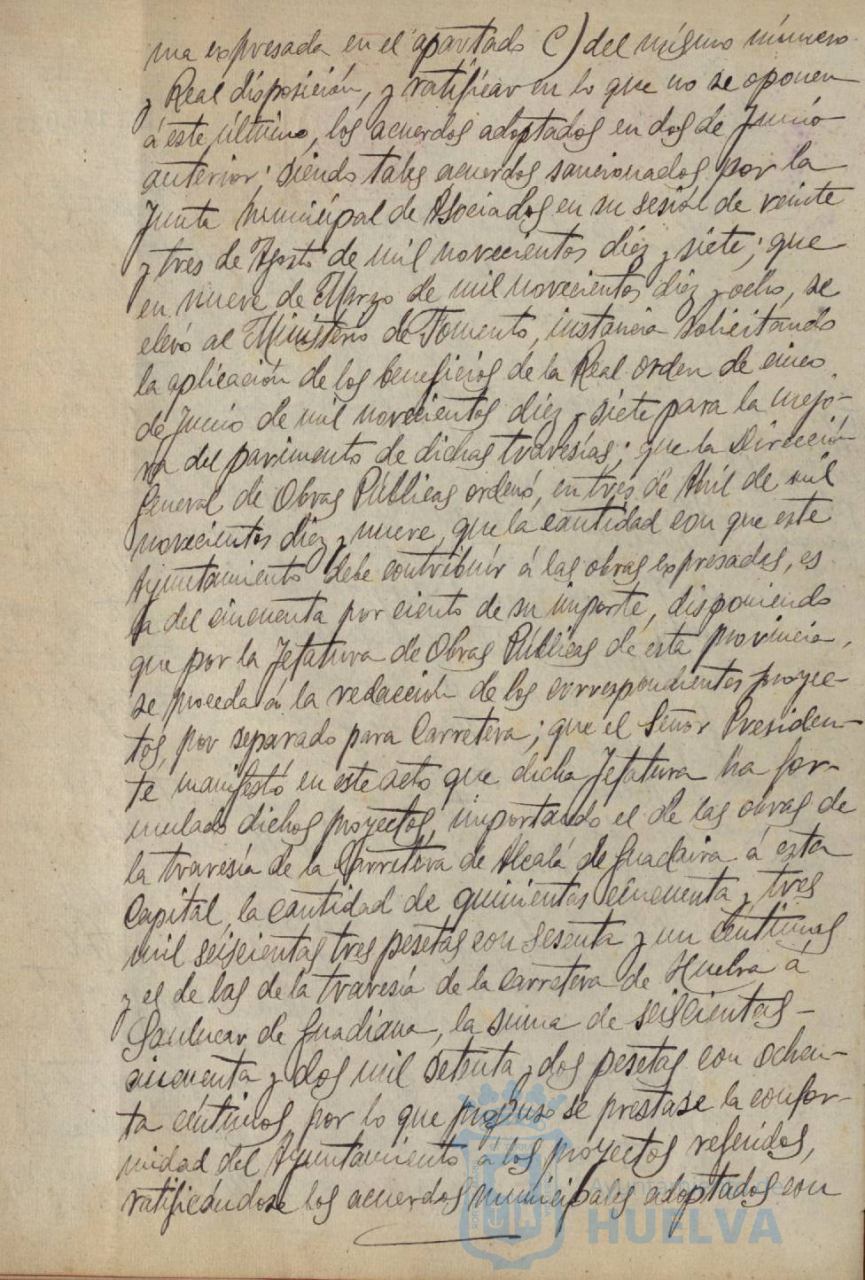 ma expresada en el apartado C) del mismo número
y Real disposición, y ratificar en lo que no se oponen
á este último, los acuerdos adoptados en dos de Junio
anterior; siendo tales acuerdos sancionados por la
Junta Municipal de Asociados en su sesión de veinte
y tres de Agosto de mil novecientos diez y siete; que
en nueve de Marzo de mil novecientos diez y ocho, se
elevó al Ministerio de Fomento, instancia solicitando
la aplicación de los beneficios de la Real orden de cinco
de Junio de mil novecientos diez y siete para la mejo-
ra del pavimento de dichas travesías; que la Dirección
General de Obras Públicas ordenó, en tres de Abril de mil
novecientos diez y nueve, que la cantidad con que este
Ayuntamiento debe contribuir á las obras expresadas, es
la del cincuenta por ciento de su importe, disponiendo
que por la Jefatura de Obras Públicas de esta provincia,
se proceda á la redacción de los correspondientes proyec-
tos, por separado para Carretera; que el Señor Presiden-
te manifestó en este acto que dicha Jefatura ha for-
mulado dichos proyectos, importando el de las obras de
la travesía de la Carretera de Alcalá de Guadaira á esta
Capital, la cantidad de quinientas cincuenta y tres
mil seiscientas tres pesetas con sesenta y un céntimos
y el de las de la travesía de la carretera de Huelva á
Sanlucar de Guadiana, la suma de seiscientas-
cincuenta y dos mil setenta y dos pesetas con ochen-
ta céntimos, por lo que propuso se prestase la confor-
midad del Ayuntamiento á los proyectos referidos,
ratificándose los acuerdos municipales adoptados con
HUELVA